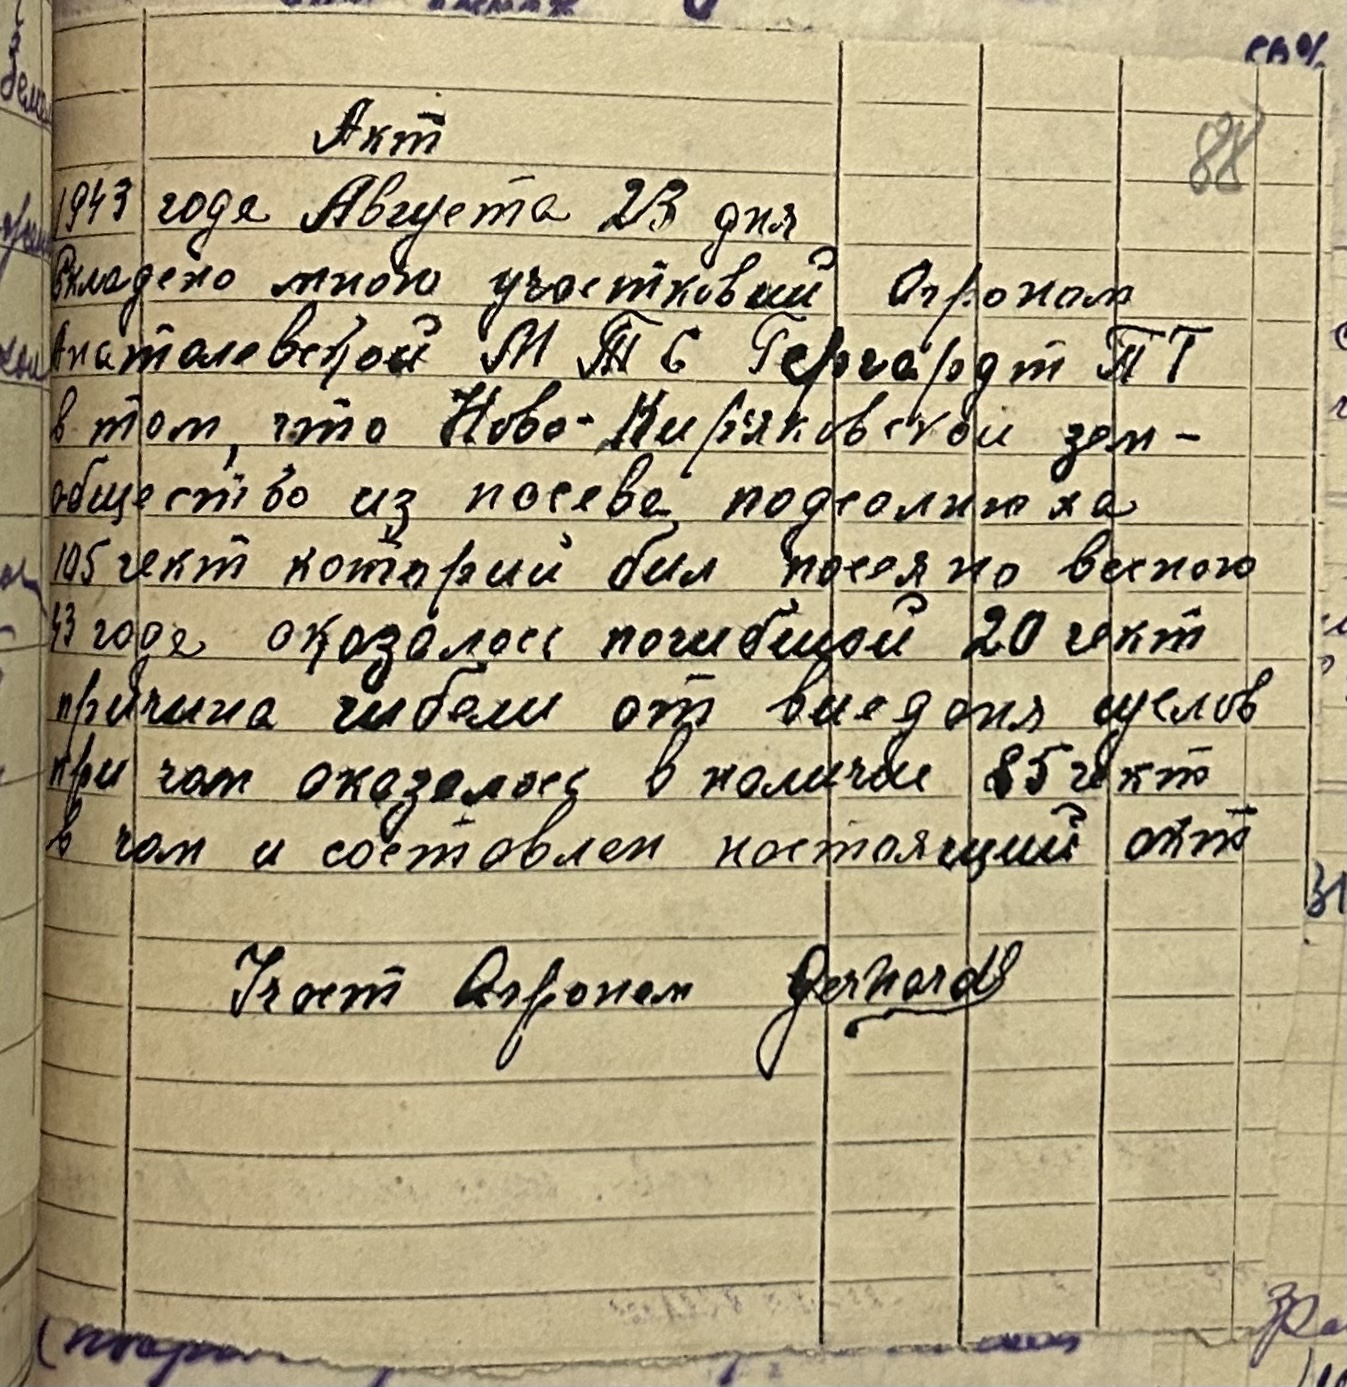 88
Акт
1943 года Августа 23 дня
Складено мною участковий Агроном
Анатолевской М Т С Гергардт П Г
в том, что Ново-Киряковской зем-
общество из посева подсолнюха
105 гект который бил посеяно весною
43 года оказалось погибшой 20 гект
причина гибели от виеданя
при чом оказалось в наличие 85 гект
в чом и составлен настоящий акт
Участ Агроном Gerhardt